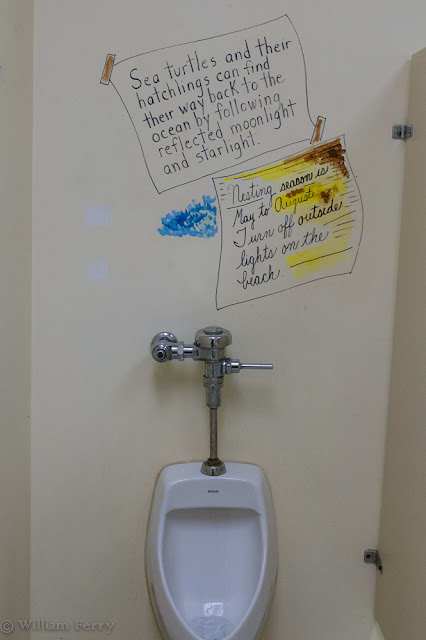 Sea turtles and their
hatchlings can find
their way back to the
ocean by following
reflected moonlight
and starlight.
Nesting season is
May to August.
Turn off outside
lights on the
beach.
KOHLER
© William Ferry